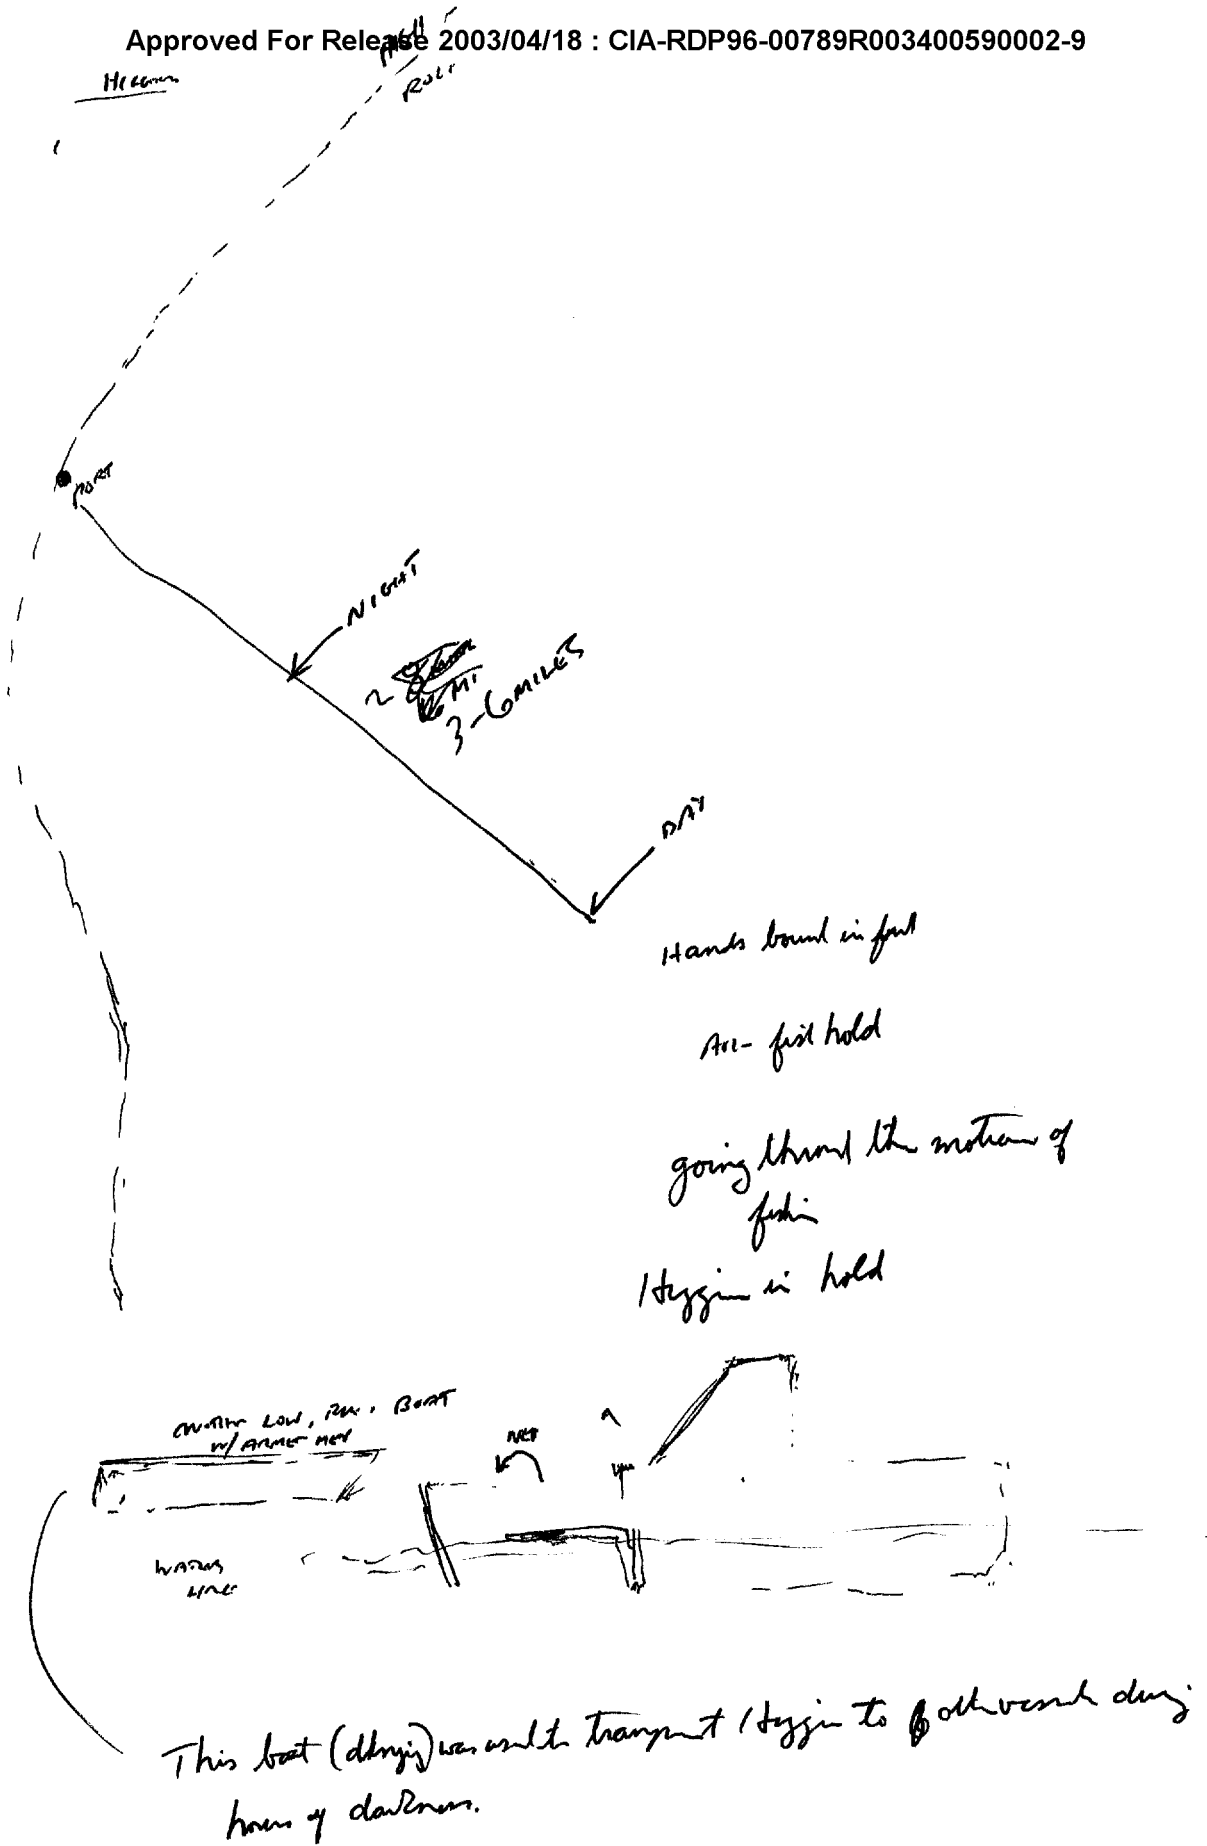 Approved For Release 2003/04/18 : CIA-RDP96-00789R003400590002-9
PORT
NIGHT
2
MI
3-6 MILES
DAY
Hands bound in
hold
going the motion of
Higgins in hold
LOW, BOAT
W/ ARMED MEN
NET
WATER
LINE
This boat (dhingy) was used to transport Higgins to other vessels during
hours of darkness.